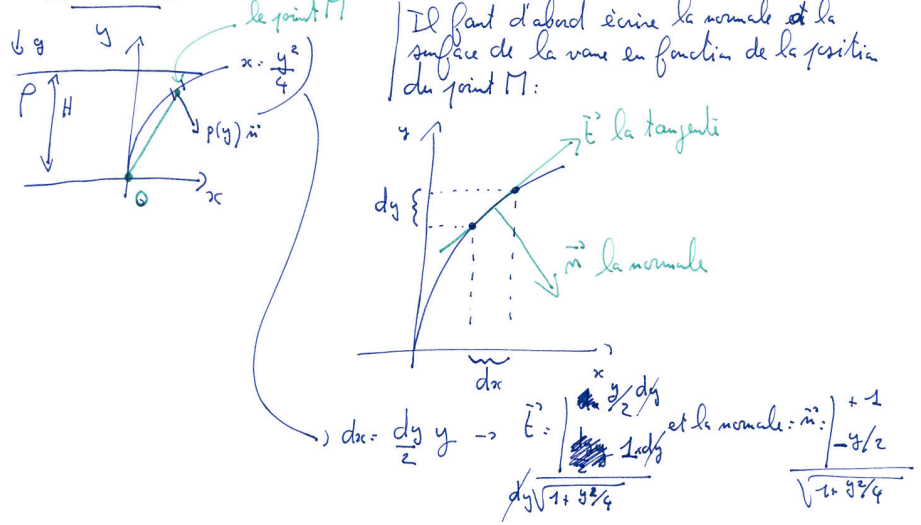 le point M
Il faut d'abord écrire la normale et la
surface de la vane en fonction de la position
du point M :
↓ g
y
x = y²/4
ρ
H
p(y) n⃗
O
x
y
t⃗ la tangente
dy {
n⃗ la normale
x
dx
dx = dy/2 y → t⃗ : | y/2 dy 1×dy / dy√(1 + y²/4) et la normale : n⃗ : | +1 -y/2 / √(1 + y²/4)